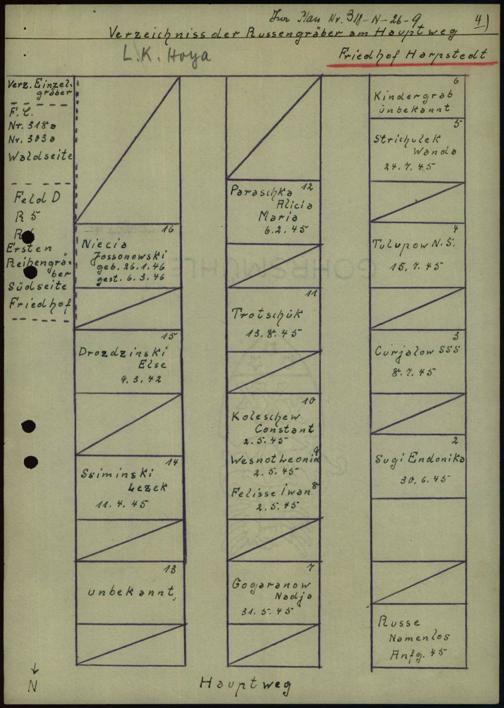 Zum Plan Nr. 311-N-26-9 4)
Verzeichniss der Russengräber am Hauptweg
L.K. Hoya
Friedhof Harpstedt
Verz. Einzel-
gräber
F.C.
Nr. 318a
Nr. 303a
Waldseite
Feld D
R 5
Ersten
Reihengrä-
ber
Südseite
Friedhof
16
Niecia
Jossonowski
geb. 26.1.46
gest. 6.3.46
15
Drozdzinski
Else
9.3.42
14
Ssiminski
Lezek
11.4.45
13
unbekannt,
12
Paraschka
Alicia
Maria
6.2.45
11
Trotschük
13.8.45
10
Koleschew
Constant
2.5.45
9
Wesnot Leonid
2.5.45
8
Felisse Iwan
2.5.45
7
Gogaranow
Nadja
31.5.45
6
Kindergrab
unbekannt
5
Strichulek
Wanda
24.7.45
4
Tulupow N.S.
15.7.45
3
Curjalow SSS
8.7.45
2
Sugi Endonika
30.6.45
Russe
Namenlos
Anfg. 45
N
Hauptweg
GOHRSMÜHLE